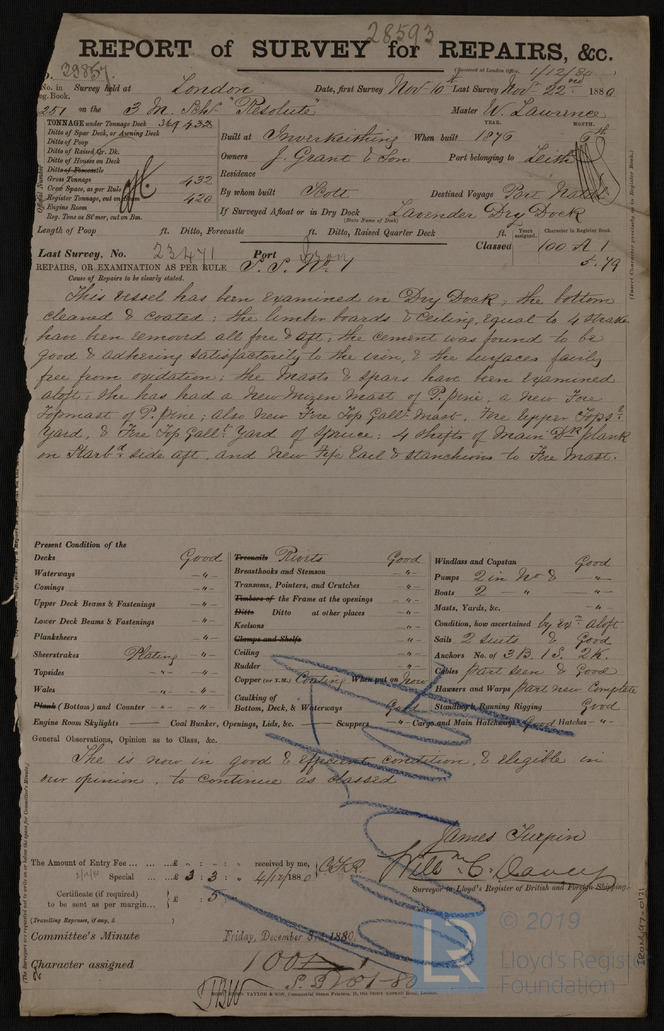 28593
REPORT of SURVEY for REPAIRS, &c.
29857.
(Received at London Office, 1/12/80
No. in Survey held at London Date, first Survey Nov. 10th Last Survey Nov. 22nd 1880
Reg. Book.
251 on the 3 M. Schr "Resolute" Master W. Lawrence
TONNAGE under Tonnage Deck 369 432
Ditto of Spar Deck, or Awning Deck
Ditto of Poop
Ditto of Raised Qr. Dk.
Ditto of Houses on Deck
Ditto of Forecastle
Gross Tonnage 432
Crew Space, as per Rule
Register Tonnage, cut on Beam 420
Engine Room
Reg. Tons as St'mer, cut on Bm.
YEAR. MONTH.
Built at Inverkeithing When built 1876 6th
Owners J. Grant & Son Port belonging to Leith
Residence
By whom built Scott Destined Voyage Port Natal
If Surveyed Afloat or in Dry Dock Lavender Dry Dock
(State Name of Dock)
Length of Poop ft. Ditto, Forecastle ft. Ditto, Raised Quarter Deck ft.
Years assigned. Character in Register Book.
Classed 100 A 1
5.79
Last Survey, No. 23471 Port Iron
REPAIRS, OR EXAMINATION AS PER RULE S.S. No. 1
Cause of Repairs to be clearly stated.
This vessel has been examined in Dry Dock; the bottom
cleaned & coated; the limber boards & Ceiling equal to 4 strakes
have been removed all fore & aft; the cement was found to be
good & adhering satisfactorily to the iron, & the surfaces fairly
free from oxidation; the Masts & Spars have been examined
aloft; she has had a New Mizen Mast of P. Pine, a New Fore
Topmast of P. Pine; also New Fore Top Gallt Mast, Fore Upper Topsl
Yard, & Fore Top Gallt Yard of Spruce; 4 shifts of Main Dk plank
on Starbd side aft, and New Fife Rail & stanchions to Fore Mast.
Present Condition of the
Decks Good
Waterways -"-
Comings -"-
Upper Deck Beams & Fastenings -"-
Lower Deck Beams & Fastenings -"-
Planksheers -"-
Sheerstrakes Plating -"-
Topsides -"- -"-
Wales -"- -"-
Plank (Bottom) and Counter -"- -"-
Treenails Rivets Good
Breasthooks and Stemson -"-
Transoms, Pointers, and Crutches -"-
Timbers of the Frame at the openings -"-
Ditto Ditto at other places -"-
Keelsons -"-
Clamps and Shelfs
Ceiling -"-
Rudder -"-
Copper (or Y.M.) Coating When put on Now
Caulking of
Bottom, Deck, & Waterways Good
Windlass and Capstan Good
Pumps 2 in No & -"-
Boats 2 " -"-
Masts, Yards, &c. -"-
Condition, how ascertained by exn aloft
Sails 2 suits & Good
Anchors No. of 3 B. 1 S. 2 K.
Cables part seen & Good
Hawsers and Warps part new Complete
Standing & Running Rigging Good
Engine Room Skylights -"- Coal Bunker, Openings, Lids, &c. -"- Scuppers -"- Cargo and Main Hatchways Good Hatches -"-
General Observations, Opinion as to Class, &c.
She is now in good & efficient condition, & eligible in
our opinion, to continue as classed
James Turpin
Willm C. Davey
Surveyor to Lloyd's Register of British and Foreign Shipping.
The Amount of Entry Fee ... ... ... £ " : " : " received by me,
Special ... ... £ 3 : 3 : " 4/12/1880
Certificate (if required) £ : 5 :
to be sent as per margin...
(Travelling Expenses, if any, £ )
Committee's Minute Friday, December 3rd, 1880.
Character assigned 100 A 1
© 2019
LR
Lloyd's Register
Foundation